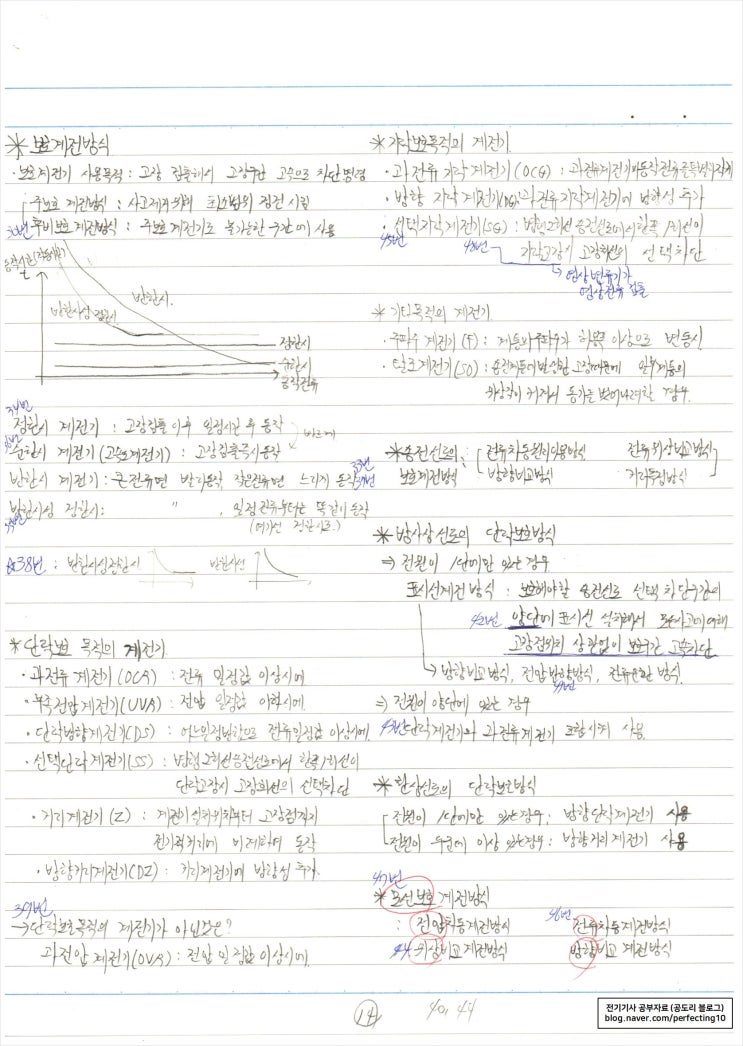 * 보호계전방식
· 보호계전기 사용목적 : 고장 검출해서 고장구간 고속으로 차단명령
주보호 계전방식 : 사고제거위해 최소범위 정전 시킴
후비보호 계전방식 : 주보호 계전기로 불가능한 구간에 사용
36번
동작시간
t
반한시성 정한시
반한시.
정한시
순한시
동작전류
34번
정한시 계전기 : 고장검출 이후 일정시간 후 동작
순한시 계전기 (고속도계전기) : 고장검출즉시동작
반한시 계전기 : 큰전류면 빨리동작, 작은전류면 느리게 동작
반한시성 정한시 : " , 일정전류부터는 똑같이 동작
(여기선 정한시로.)
☆38번 : 반한시성정한시 반한시성
* 단락보호 목적의 계전기
· 과전류 계전기(OCR) : 전류 일정값 이상시에
· 부족전압계전기(UVR) : 전압 일정값 이하시에
· 단락방향계전기(DS) : 어느일정방향으로 전류일정값 이상시에.
· 선택단락계전기(SS) : 병행2회선송전선로에서 한쪽1회선이
단락고장시 고장회선의 선택차단
· 거리계전기(Z) : 계전기설치위치부터 고장점까지
전기적거리에 비례하여 동작
· 방향거리계전기(DZ) : 거리계전기에 방향성 추가.
39번
→ 단락보호목적의 계전기가 아닌것은?
과전압계전기(OVR) : 전압 일정값 이상시에.
* 지락보호목적의 계전기
· 과전류 지락 계전기(OCG) : 과전류계전기의동작전류를특별히작게
· 방향 지락 계전기(DG) : 과전류지락계전기에 방향성 추가
· 선택지락계전기(SG) : 병행2회선 송전선로에서한쪽 1회선이
지락고장시 고장회선의 선택차단
45번 48번
→ 영상변류기가
영상전류 검출
* 기타목적의 계전기
· 주파수 계전기(F) : 계통의주파수가 허용폭 이상으로 변동시
· 탈조계전기(SO) : 송전계통에발생한 고장때문에 일부계통의
위상각이 커져서 동기를 벗어나려할 경우.
* 송전선로의 보호계전방식 : 전류차동원리이용방식 전류위상비교방식
방향비교방식 거리측정방식
* 방사상선로의 단락보호방식
⇒ 전원이 1단에만 있는 경우
표시선계전방식 : 보호해야할 송전선로 선택 차단구간에
42번 양단에 표시선 설치해서 모든사고에 대해
고장점위치 상관없이 보호구간 고속차단
→ 방향비교방식, 전압방향방식, 전류순환 방식.
49번
⇒ 전원이 양단에 있는 경우
43번 단락계전기와 과전류계전기 조합시켜 사용.
* 환상선로의 단락보호방식
전원이 1단에만 있는경우 : 방향단락계전기 사용
전원이 두군데 이상 있는경우 : 방향거리계전기 사용
47번
* 모선보호 계전방식
: 전압차동계전방식 46번 전류차동계전방식
44 위상비교계전방식 방향비교 계전방식
14 40, 44
전기기사 공부자료 (공도리 블로그)
blog.naver.com/perfecting10